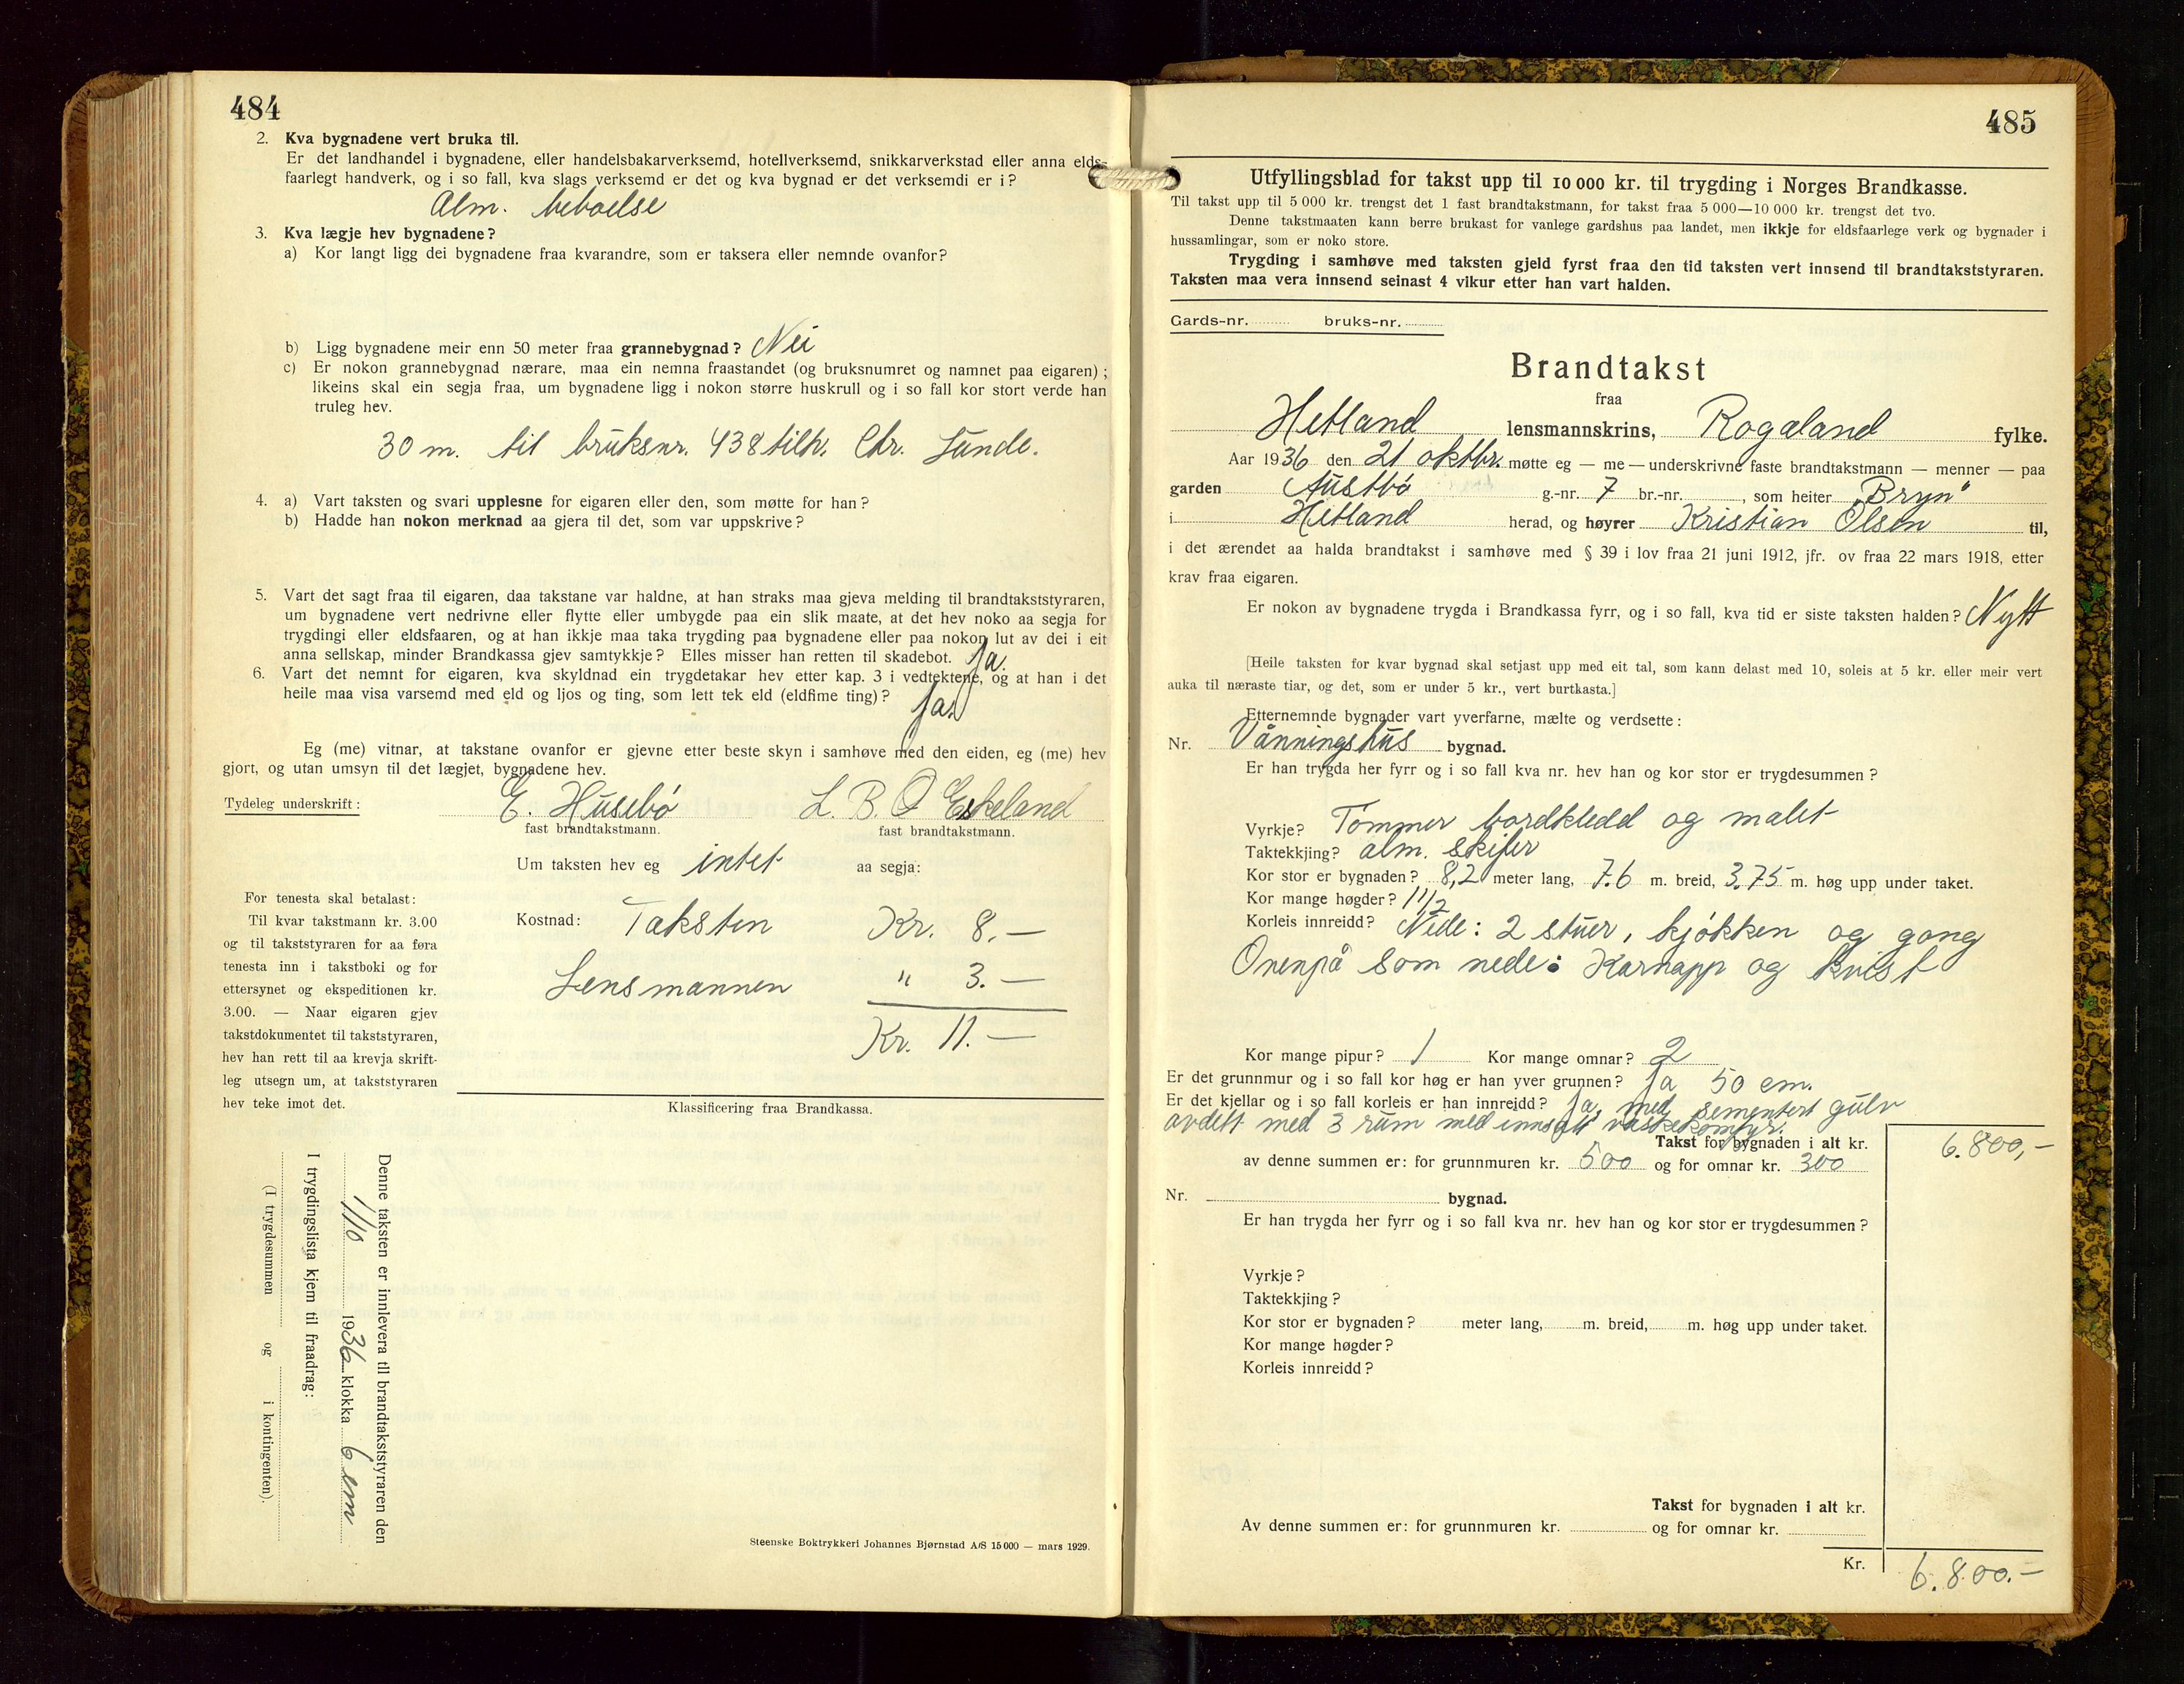 484
2. Kva bygnadene vert bruka til.
Er det landhandel i bygnadene, eller handelsbakarverksemd, hotellverksemd, snikkarverkstad eller anna elds-
faarlegt handverk, og i so fall, kva slags verksemd er det og kva bygnad er det verksemdi er i?
Alm. beboelse
3. Kva lægje hev bygnadene?
a) Kor langt ligg dei bygnadene fraa kvarandre, som er taksera eller nemnde ovanfor?
b) Ligg bygnadene meir enn 50 meter fraa grannebygnad? Nei
c) Er nokon grannebygnad nærare, maa ein nemna fraastandet (og bruksnumret og namnet paa eigaren);
likeins skal ein segja fraa, um bygnadene ligg i nokon større huskrull og i so fall kor stort verde han
truleg hev.
30 m. til bruksnr. 438 tilh. Chr. Lunde.
4. a) Vart taksten og svari upplesne for eigaren eller den, som møtte for han?
b) Hadde han nokon merknad aa gjera til det, som var uppskrive?
5. Vart det sagt fraa til eigaren, daa takstane var haldne, at han straks maa gjeva melding til brandtakststyraren,
um bygnadene vert nedrivne eller flytte eller umbygde paa ein slik maate, at det hev noko aa segja for
trygdingi eller eldsfaaren, og at han ikkje maa taka trygding paa bygnadene eller paa nokon lut av dei i eit
anna sellskap, minder Brandkassa gjev samtykkje? Elles misser han retten til skadebot. Ja.
6. Vart det nemnt for eigaren, kva skyldnad ein trygdetakar hev etter kap. 3 i vedtektene, og at han i det
heile maa visa varsemd med eld og ljos og ting, som lett tek eld (eldfime ting)? Ja.
Eg (me) vitnar, at takstane ovanfor er gjevne etter beste skyn i samhøve med den eiden, eg (me) hev
gjort, og utan umsyn til det lægjet, bygnadene hev.
Tydeleg underskrift: E. Husebø L. B. O Eskeland
fast brandtakstmann. fast brandtakstmann.
Um taksten hev eg intet aa segja:
For tenesta skal betalast:
Til kvar takstmann kr. 3.00
og til takststyraren for aa føra
tenesta inn i takstboki og for
ettersynet og ekspeditionen kr.
3.00. — Naar eigaren gjev
takstdokumentet til takststyraren,
hev han rett til aa krevja skrift-
leg utsegn um, at takststyraren
hev teke imot det.
Kostnad: Taksten Kr. 8.—
Lensmannen " 3.—
Kr. 11.—
Klassificering fraa Brandkassa.
Denne taksten er innlevera til brandtakststyraren den
1/10 1936 klokka 6 em
I trygdingslista kjem til fraadrag:
(I trygdesummen og i kontingenten).
Steenske Boktrykkeri Johannes Bjørnstad A/S 15000 — mars 1929.
485
Utfyllingsblad for takst upp til 10 000 kr. til trygding i Norges Brandkasse.
Til takst upp til 5 000 kr. trengst det 1 fast brandtakstmann, for takst fraa 5 000—10 000 kr. trengst det tvo.
Denne takstmaaten kann berre brukast for vanlege gardshus paa landet, men ikkje for eldsfaarlege verk og bygnader i
hussamlingar, som er noko store.
Trygding i samhøve med taksten gjeld fyrst fraa den tid taksten vert innsend til brandtakststyraren.
Taksten maa vera innsend seinast 4 vikur etter han vart halden.
Gards-nr. bruks-nr.
Brandtakst
fraa
Hetland lensmannskrins, Rogaland fylke.
Aar 1936 den 21 oktbr. møtte eg — me — underskrivne faste brandtakstmann — menner — paa
garden Austbø g.-nr. 7 br.-nr. , som heiter "Bryn"
i Hetland herad, og høyrer Kristian Olsen til,
i det ærendet aa halda brandtakst i samhøve med § 39 i lov fraa 21 juni 1912, jfr. ov fraa 22 mars 1918, etter
krav fraa eigaren.
Er nokon av bygnadene trygda i Brandkassa fyrr, og i so fall, kva tid er siste taksten halden? Nytt
[Heile taksten for kvar bygnad skal setjast upp med eit tal, som kann delast med 10, soleis at 5 kr. eller meir vert
auka til næraste tiar, og det, som er under 5 kr., vert burtkasta.]
Etternemnde bygnader vart yverfarne, mælte og verdsette:
Nr. Vånningshus bygnad.
Er han trygda her fyrr og i so fall kva nr. hev han og kor stor er trygdesummen?
Vyrkje? Tømmer bordkledd og malet
Taktekkjing? alm. skifer
Kor stor er bygnaden? 8,2 meter lang, 7.6 m. breid, 3.75 m. høg upp under taket.
Kor mange høgder? 1 1/2
Korleis innreidd? Nede: 2 stuer, kjøkken og gang
Ovenpå som nede: Karnapp og kvist
Kor mange pipur? 1 Kor mange omnar? 2
Er det grunnmur og i so fall kor høg er han yver grunnen? Ja 50 cm.
Er det kjellar og i so fall korleis er han innreidd? Ja, med sementert gulv
avdelt med 3 rum med innsatt vaskekomfyr.
Takst for bygnaden i alt kr. 6.800,—
av denne summen er: for grunnmuren kr. 500 og for omnar kr. 300
Nr. bygnad.
Er han trygda her fyrr og i so fall kva nr. hev han og kor stor er trygdesummen?
Vyrkje?
Taktekkjing?
Kor stor er bygnaden? meter lang, m. breid, m. høg upp under taket.
Kor mange høgder?
Korleis innreidd?
Takst for bygnaden i alt kr.
Av denne summen er: for grunnmuren kr. og for omnar kr.
Kr. 6.800.—